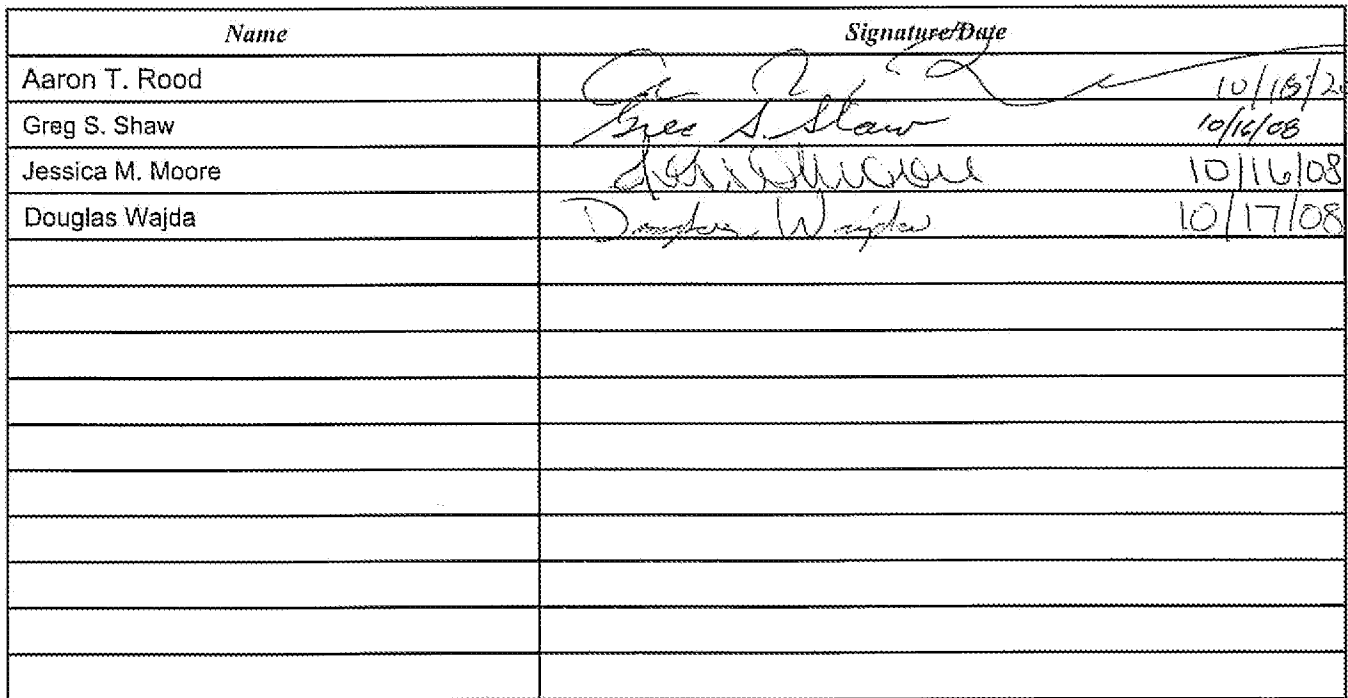 Name Signature/Date
Aaron T. Rood
Greg S. Shaw Greg S. Shaw 10/16/08
Jessica M. Moore 10/16/08
Douglas Wajda Douglas Wajda 10/17/08